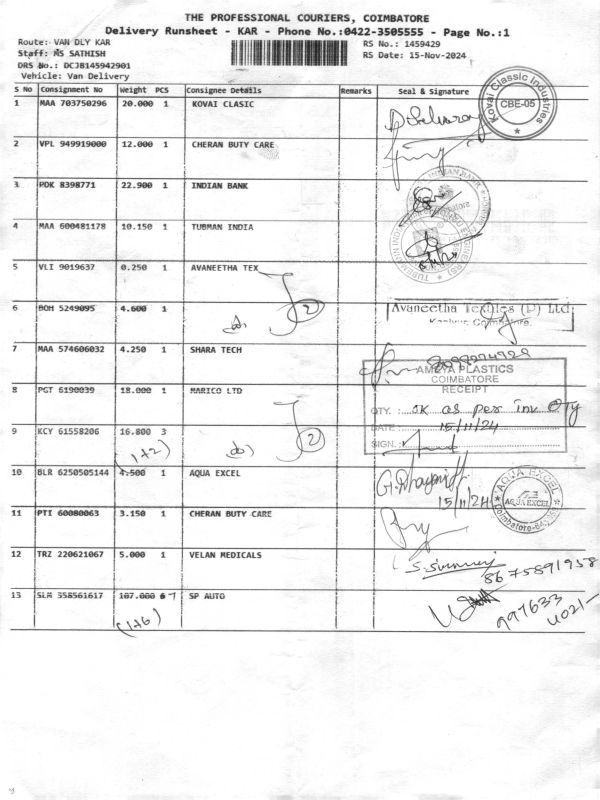 THE PROFESSIONAL COURIERS, COIMBATORE
Delivery Runsheet - KAR - Phone No.:0422-3505555 - Page No.:1
Route: VAN DLY KAR
RS No.: 1459429
Staff: MS SATHISH
RS Date: 15-Nov-2024
DRS No.: DCJB145942901
Vehicle: Van Delivery
S No Consignment No Weight PCS Consignee Details Remarks Seal & Signature
1 MAA 703750296 20.000 1 KOVAI CLASIC
Kovai Classic Industries
CBE-05
2 VPL 949919000 12.000 1 CHERAN BUTY CARE
3 PDK 8398771 22.900 1 INDIAN BANK
INDIAN BANK
4 MAA 600481178 10.150 1 TUBMAN INDIA
5 VLI 9019637 0.250 1 AVANEETHA TEX
2
6 BOM 5249095 4.600 1
Avaneetha Textiles (P) Ltd
Coimbatore.
7 MAA 574606032 4.250 1 SHARA TECH
AMEYA PLASTICS
COIMBATORE
RECEIPT
8 PGT 6190039 18.000 1 MARICO LTD
QTY. : OK as per inv QTY
DATE : 15/11/24
9 KCY 61558206 16.800 3
2
SIGN. :
(1+2)
10 BLR 6250505144 4.500 1 AQUA EXCEL
15/11/24
AQUA EXCEL
AQUA EXCEL
11 PTI 60080063 3.150 1 CHERAN BUTY CARE
12 TRZ 220621067 5.000 1 VELAN MEDICALS
8675891958
13 SLM 358561617 107.000 6 7 SP AUTO
997633
4021-
(1+6)